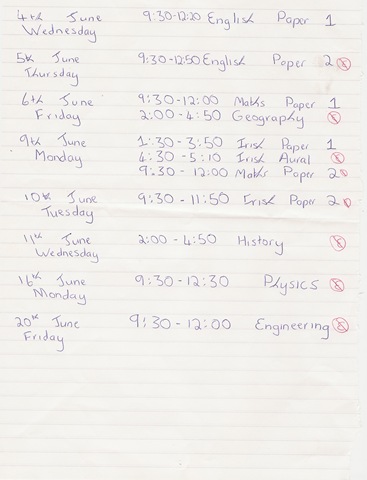 4th June 9:30-12:20 English Paper 1
Wednesday
5th June 9:30-12:50 English Paper 2
Thursday
6th June 9:30-12:00 Maths Paper 1
Friday 2:00-4:50 Geography
9th June 1:30-3:50 Irish Paper 1
Monday 4:30-5:10 Irish Aural
9:30-12:00 Maths Paper 2
10th June 9:30-11:50 Irish Paper 2
Tuesday
11th June 2:00-4:50 History
Wednesday
16th June 9:30-12:30 Physics
Monday
20th June 9:30-12:00 Engineering
Friday